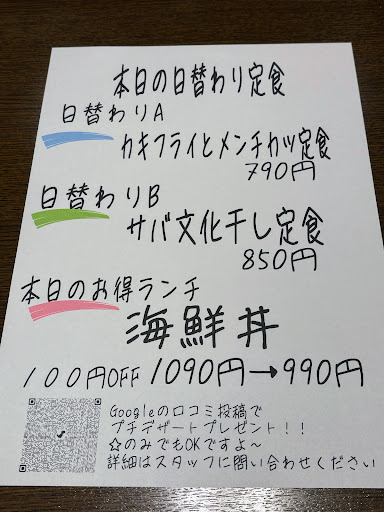 本日の日替わり定食
日替わりA
カキフライとメンチカツ定食
790円
日替わりB
サバ文化干し定食
850円
本日のお得ランチ
海鮮丼
100円OFF 1090円→990円
Googleの口コミ投稿で
プチデザートプレゼント!!
☆のみでもOKですよ~
詳細はスタッフに問い合わせください